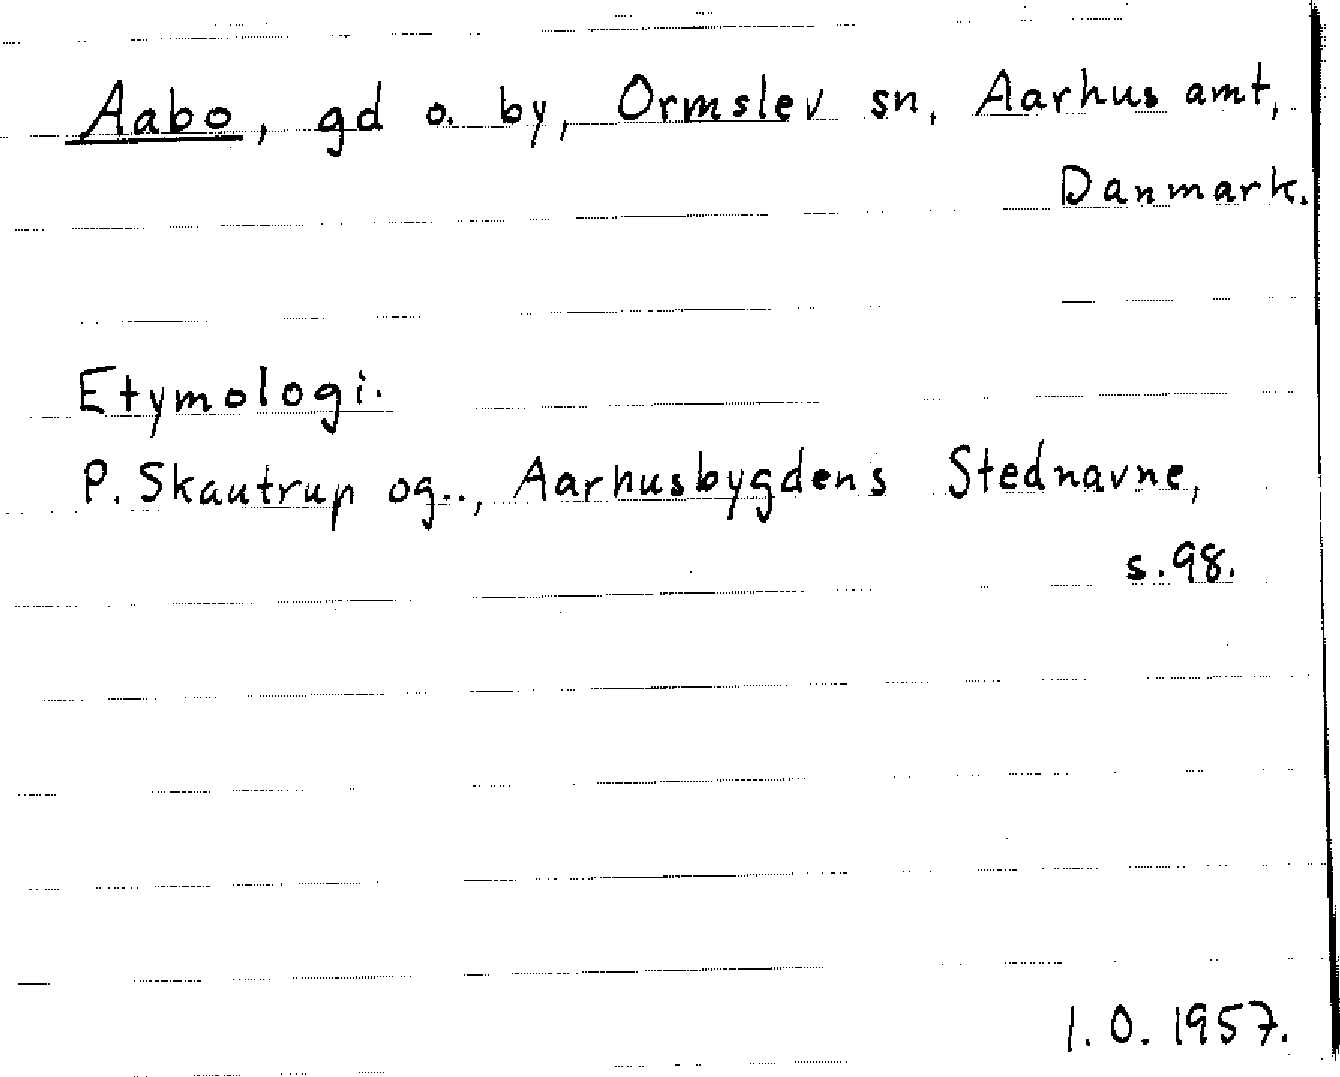 Aabo, gd o. by, Ormslev sn, Aarhus amt,
Danmark.
Etymologi.
P. Skautrup og.., Aarhusbygdens Stednavne,
s.98.
I.O. 1957.